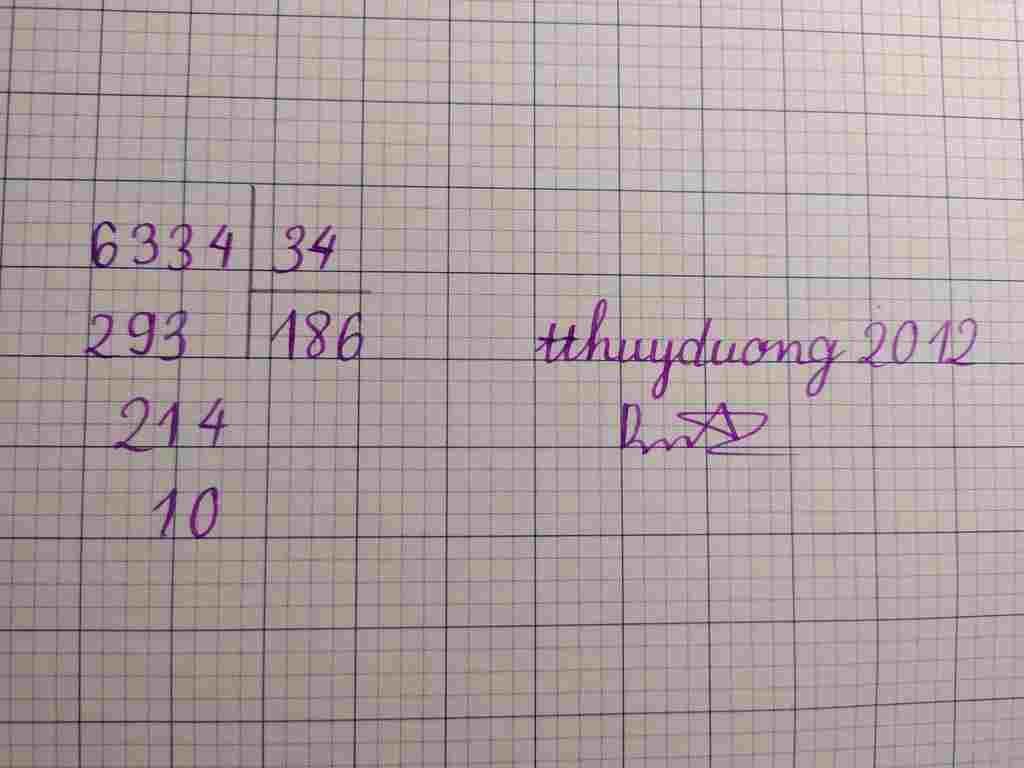 6334 34
293 186 tthuyduong 2012
214
10